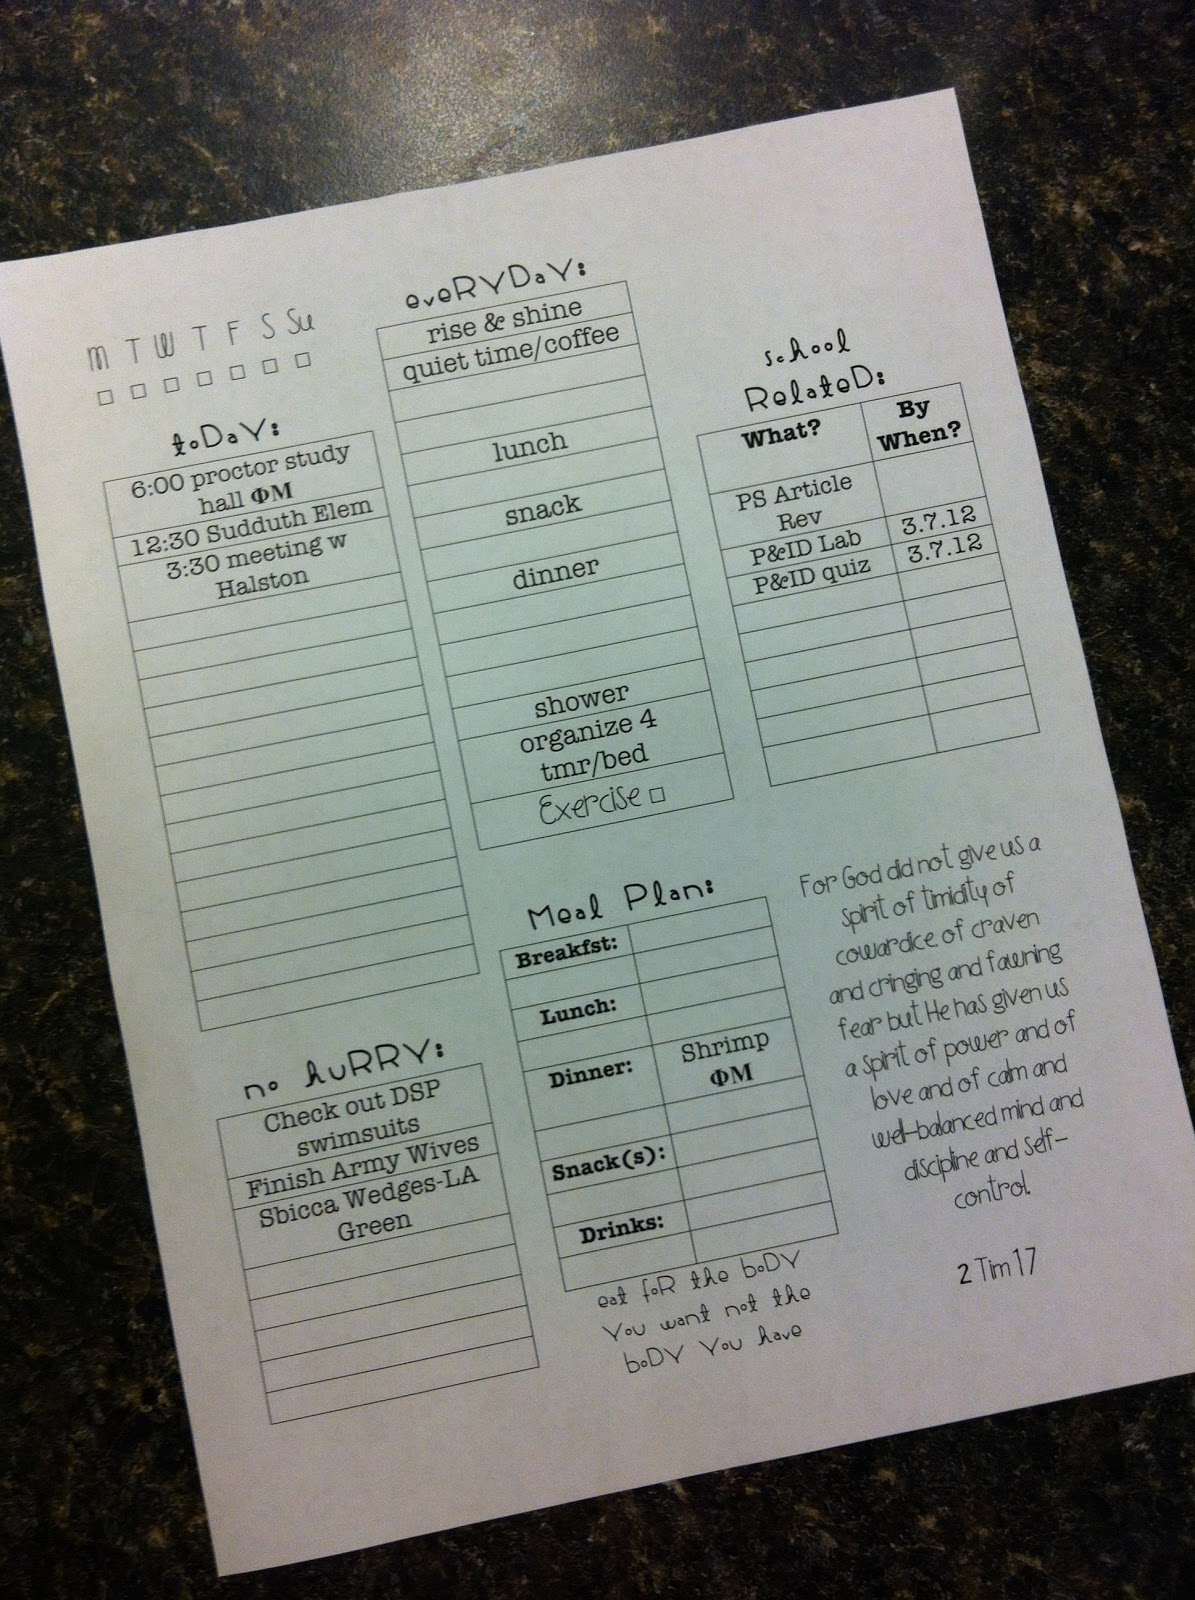 M T W T F S Su
toDaY:
6:00 proctor study
hall ΦM
12:30 Sudduth Elem
3:30 meeting w
Halston
no huRRY:
Check out DSP
swimsuits
Finish Army Wives
Sbicca Wedges-LA
Green
eveRYDaY:
rise & shine
quiet time/coffee
lunch
snack
dinner
shower
organize 4
tmr/bed
Exercise
Meal Plan:
Breakfst:
Lunch:
Dinner: Shrimp
ΦM
Snack(s):
Drinks:
eat foR the boDY
You want not the
boDY You have
school
RelateD:
What? By
When?
PS Article
Rev
P&ID Lab 3.7.12
P&ID quiz 3.7.12
For God did not give us a
spirit of timidity of
cowardice of craven
and cringing and fawning
fear but He has given us
a spirit of power and of
love and of calm and
well-balanced mind and
discipline and self-
control.
2 Tim 17